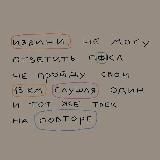 извини не могу
ответить пока
не пройду свои
13 км слушая один
и тот же трек
на повторе